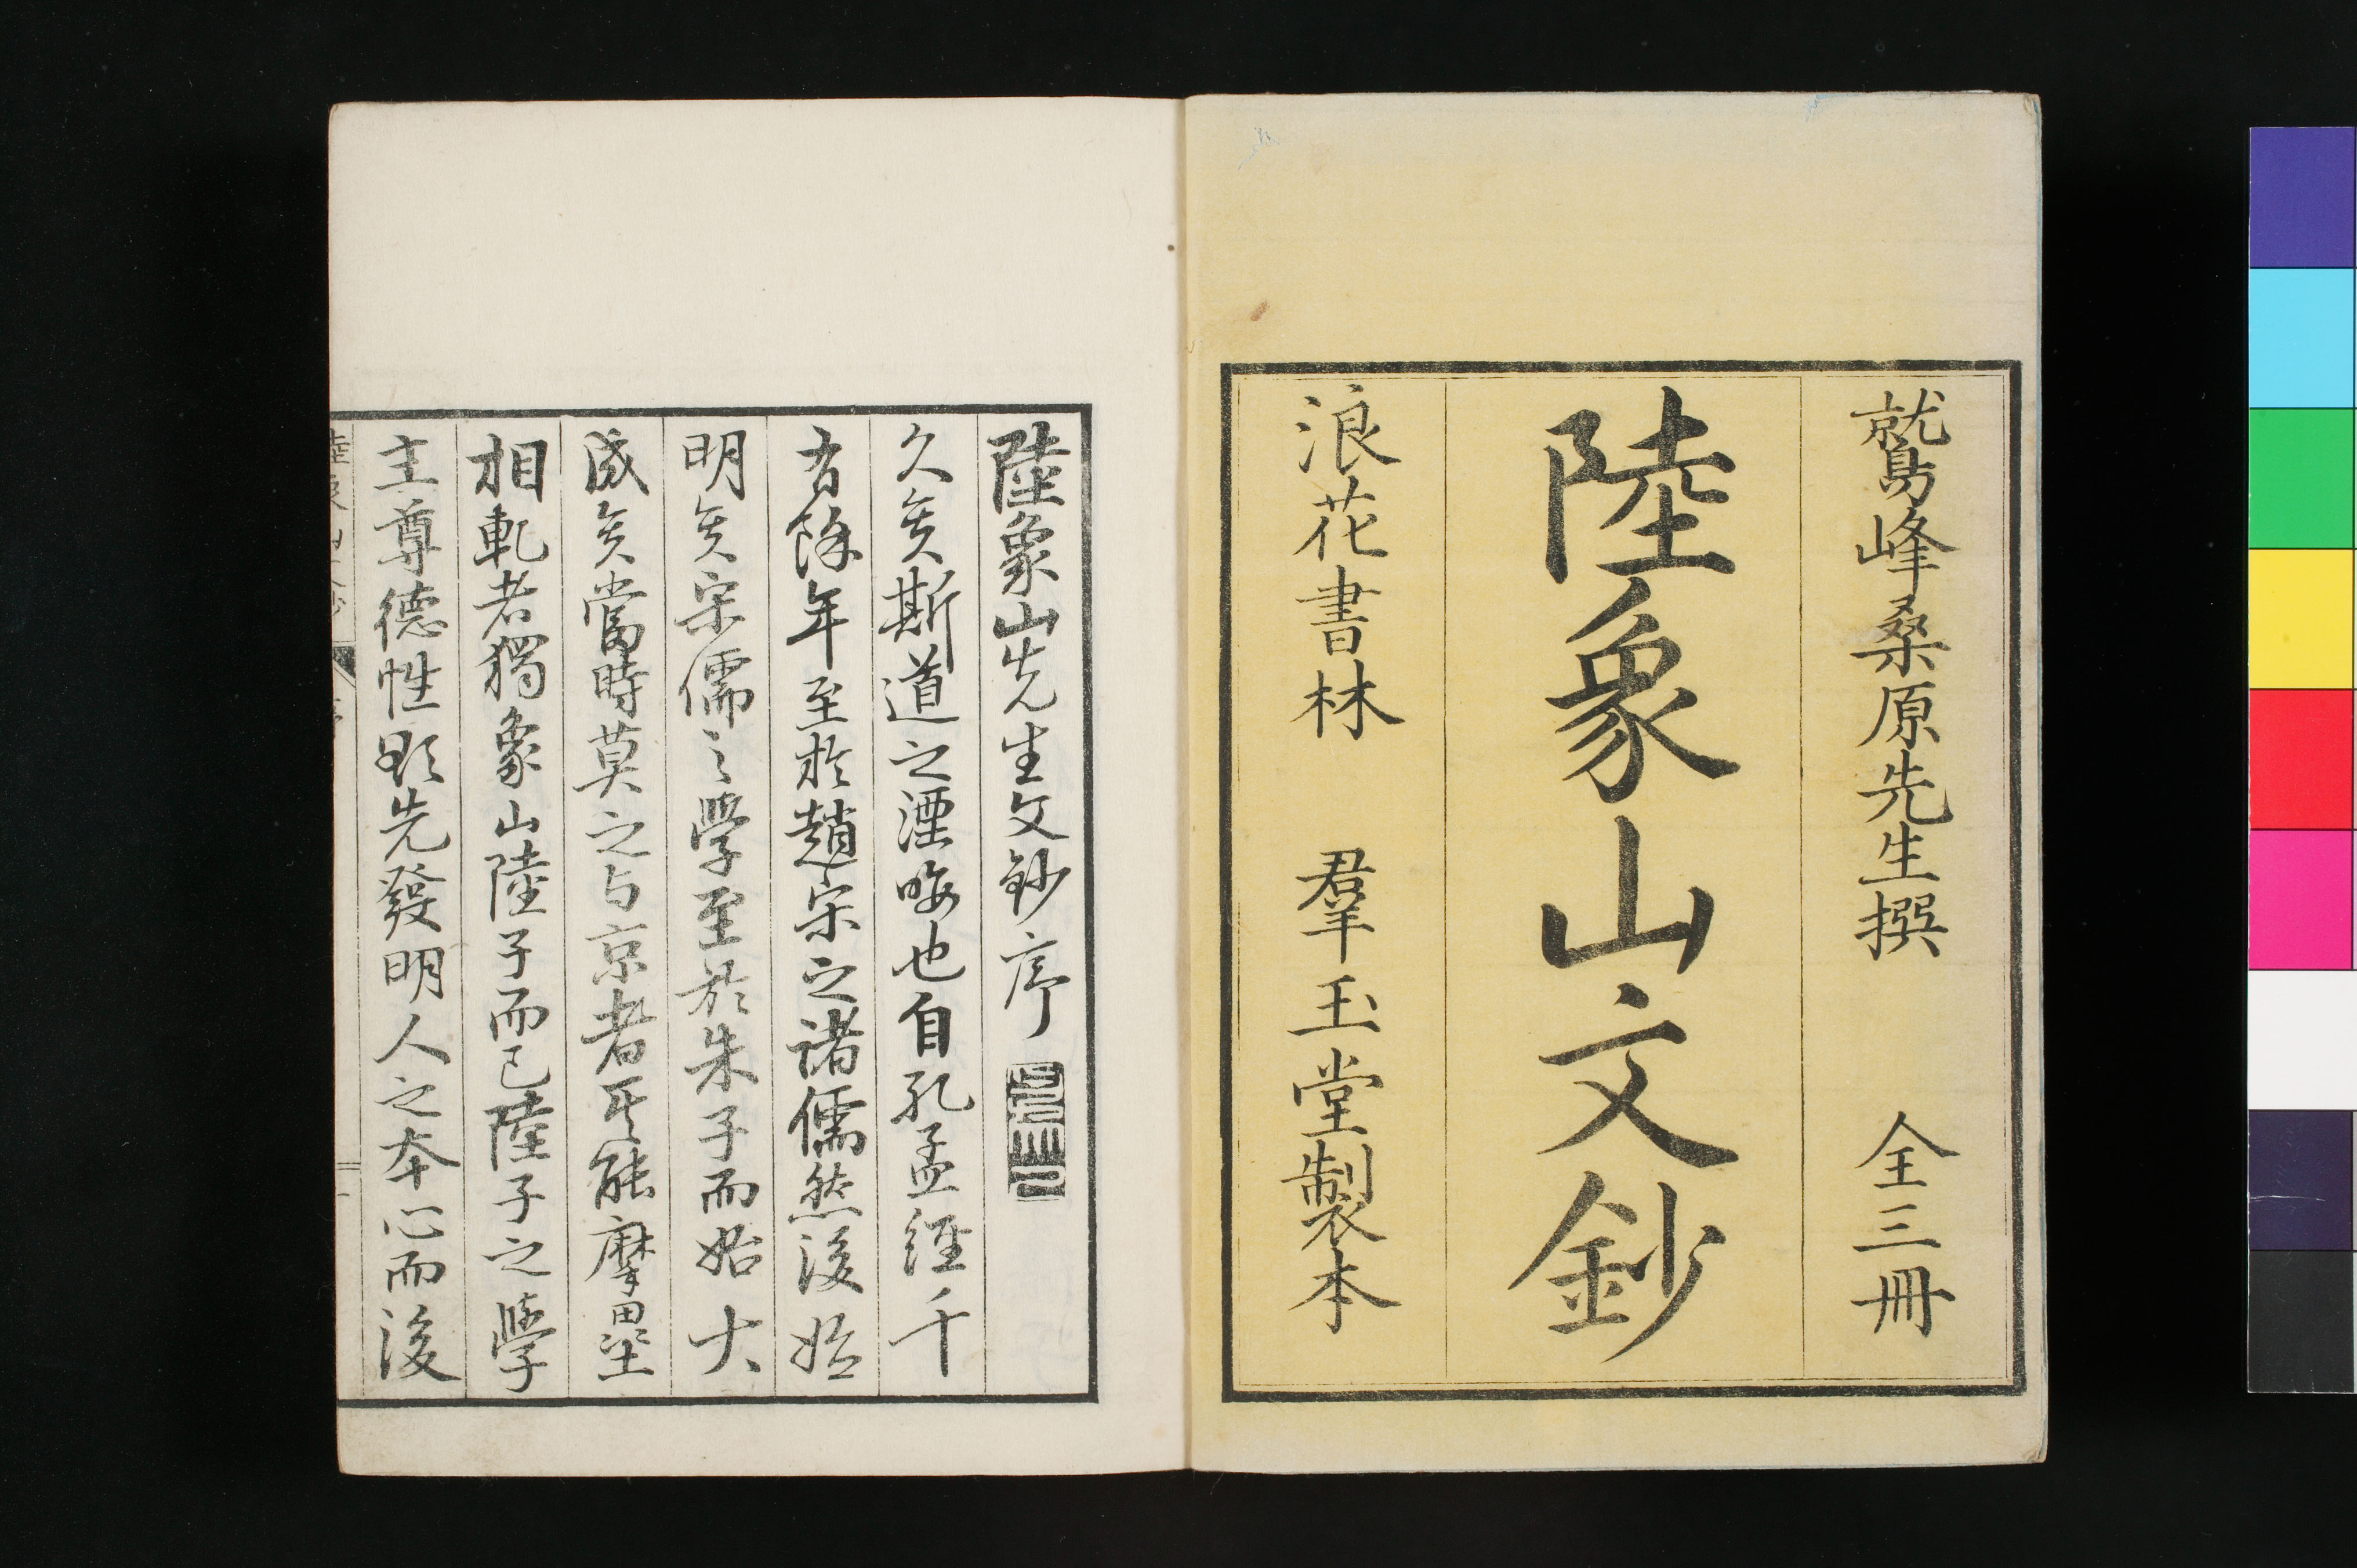 鷲峰桑原先生撰 全三冊
陸象山文鈔
浪花書林 羣玉堂製本
陸象山先生文鈔序
久矣斯道之湮晦也自孔孟経千
有餘年至於趙宋之諸儒然後始
明矣宋儒之學至於朱子而始大
盛矣當時莫之与京者其能摩壘
相軋者獨象山陸子而已陸子之學
主尊德性欲先發明人之本心而後